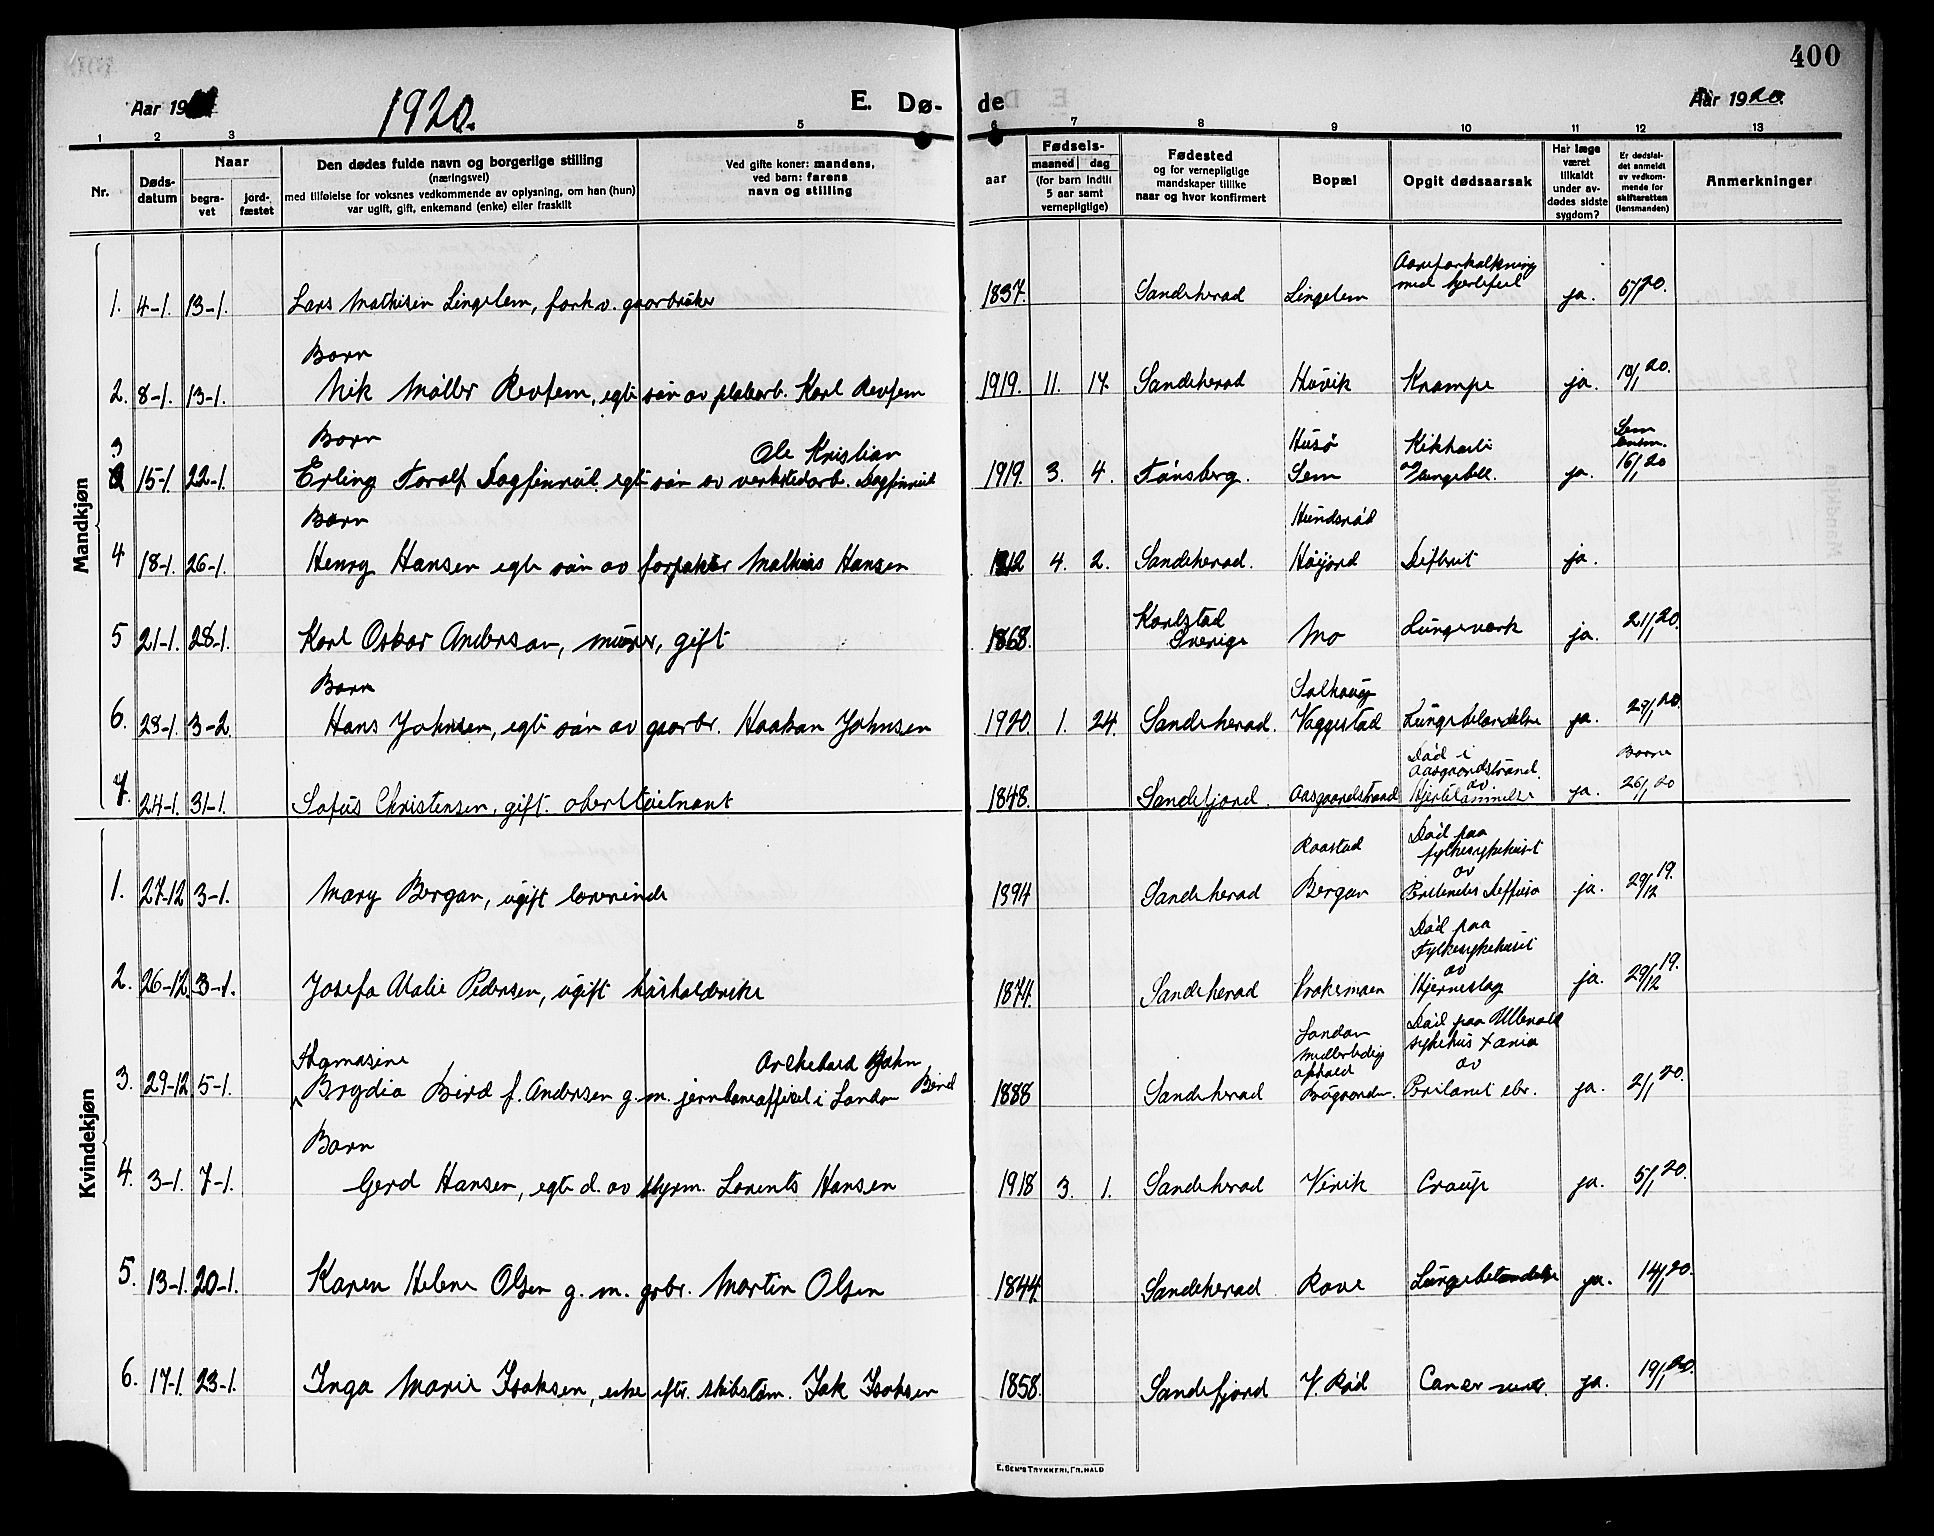 400
Aar 19
1920.
E. Dø-
de
Aar 1920.
1 2 3 5 6 7 8 9 10 11 12 13
Nr.
Døds-
datum
Naar
begra-
vet
jord-
fæstet
Den dødes fulde navn og borgerlige stilling
(næringsvei)
med tilføielse for voksnes vedkommende av oplysning, om han (hun)
var ugift, gift, enkemand (enke) eller fraskilt
Ved gifte koner: mandens,
ved barn: farens
navn og stilling
aar
Fødsels-
maaned dag
(for barn indtil
5 aar samt
vernepligtige)
Fødested
og for vernepligtige
mandskaper tillike
naar og hvor konfirmert
Bopæl
Opgit dødsaarsak
Har læge
været
tilkaldt
under av-
dødes sidste
sygdom?
Er dødsfal-
det anmeldt
av vedkom-
mende for
skifteretten
(lensmanden)
Anmerkninger
Mandkjøn
1. 4-1. 13-1. Lars Mathisen Lingelem, forh.v. gaarbruker 1837. Sandeherad Lingelem Aareforkalkning
med hjertefeil ja. 5/1 20.
Barn
2. 8-1. 13-1. Nik Møller Revfem, egte søn av platearb. Karl Revfem 1919. 11. 17. Sandeherad Høvik Krampe ja. 10/1 20.
Barn Ole Kristian Husø Kikhoste Sem
lensm.
3 15-1. 22-1. Erling Toralf Dagfinrud egte søn av verkstedarb. Dagfinrud 1919. 3. 4. Tønsberg. Sem og Lungebet. ja. 16/1 20
Barn Hundsrød
4 18-1. 26-1. Henry Hansen egte søn av forpakter Mathias Hansen 1912 4. 2. Sandeherad. Høijord Difterit ja.
5 21-1. 28-1. Karl Oskar Anderson, murer, gift 1868. Karlstad
Sverige Mo Lungeverk ja. 21/1 20.
Barn Solhaug
6. 28-1. 3-2. Hans Johnsen, egte søn av gaarbr. Haakon Johnsen 1920 1. 24. Sandeherad. Vaggestad Lungebetændelse ja. 29/1 20.
Død i
Aasgaardstrand
av Borre
7. 24-1. 31-1. Sofus Christensen, gift. oberstløitnant 1848. Sandefjord. Aasgaardstrand Hjertelammelse ja. 26/1 20
Kvindekjøn
Raastad Død paa
fylkesykehuset
av
1. 27-12 3-1. Mary Bergan, ugift lærerinde 1894 Sandeherad Bergan Peritonitis Diffusa ja. 29/12 19.
Død paa
Fylkesykehuset
av
2. 26-12. 3-1. Josefa Atalie Pedersen, ugift husholderske 1874. Sandeherad Krokemoen Hjerneslag ja. 29/12 19.
Thomasine Archebald John London
midlertidig
ophold Død paa Ullevold
sykehus X ania
av
3. 29-12 5-1. Brydia Bird f. Andersen g.m. jernbaneofficel i London Bird 1888 Sandeherad Bøgaarden. ebr. ja. 2/1 20.
Barn
4. 3-1. 7-1. Gerd Hansen, egte d. av styrm. Lorents Hansen 1918 3. 1. Sandeherad Virik Croup ja. 5/1 20.
5. 13-1. 20-1. Karen Helene Olsen g. m. grbr. Martin Olsen 1844. Sandeherad Rove Lungebetændelse ja. 14/1 20.
6. 17-1. 23-1. Inga Marie Isaksen, enke eftr. skibstøm. Isak Isaksen 1858. Sandefjord V. Rød Cancer ventr. ja. 19/1 20.
E. SEM'S TRYKKERI, FR.HALD